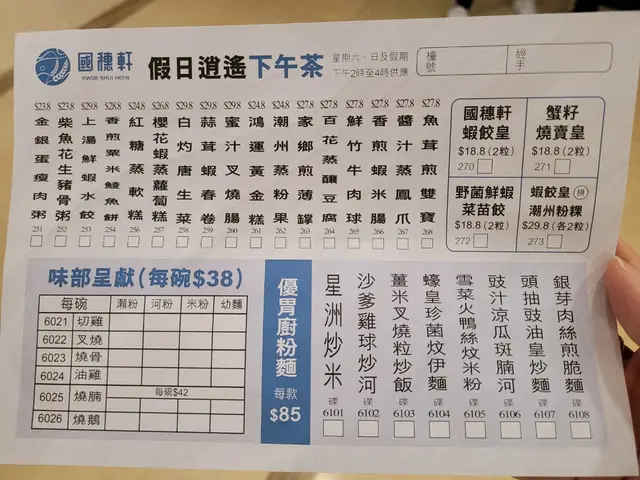 國穗軒
KWOK SHUI HEEN
假日逍遙下午茶
星期六、日及假期
下午2時至4時供應
檯號
經手
$23.8 金銀蛋瘦肉粥 251
$23.8 柴魚花生豬骨粥 252
$29.8 上湯鮮蝦水餃 253
$28.8 香煎粟米鯪魚餅 255
$24.8 紅糖蒸軟糕 256
$26.8 櫻花蝦蒸蘿蔔糕 257
$29.8 白灼唐生菜 258
$29.8 蒜茸蝦春卷 259
$29.8 蜜汁叉燒腸 260
$24.8 鴻運黃金糕 261
$24.8 潮州蒸粉果 262
$23.8 家鄉煎薄罉 263
$27.8 百花蒸釀豆腐 264
$27.8 鮮竹牛肉球 265
$27.8 香煎蝦米腸 266
$27.8 醬汁蒸鳳爪 267
$27.8 魚茸煎雙寶 268
國穗軒
蝦餃皇
$18.8 (2粒)
270
蟹籽
燒賣皇
$18.8 (2粒)
271
野菌鮮蝦
菜苗餃
$18.8 (2粒)
272
蝦餃皇 拼
潮州粉粿
$29.8 (各2粒)
273
味部呈獻(每碗$38)
每碗 瀨粉 河粉 米粉 幼麵
6021 切雞
6022 叉燒
6023 燒骨
6024 油雞
6025 燒腩 每碗$42
6026 燒鵝
優冑廚粉麵
每款
$85
星洲炒米 碟 6101
沙爹雞球炒河 碟 6102
薑米叉燒粒炒飯 碟 6103
蠔皇珍菌炆伊麵 碟 6104
雪菜火鴨絲炆米粉 碟 6105
豉汁涼瓜斑腩河 碟 6106
頭抽豉油皇炒麵 碟 6107
銀芽肉絲煎脆麵 碟 6108